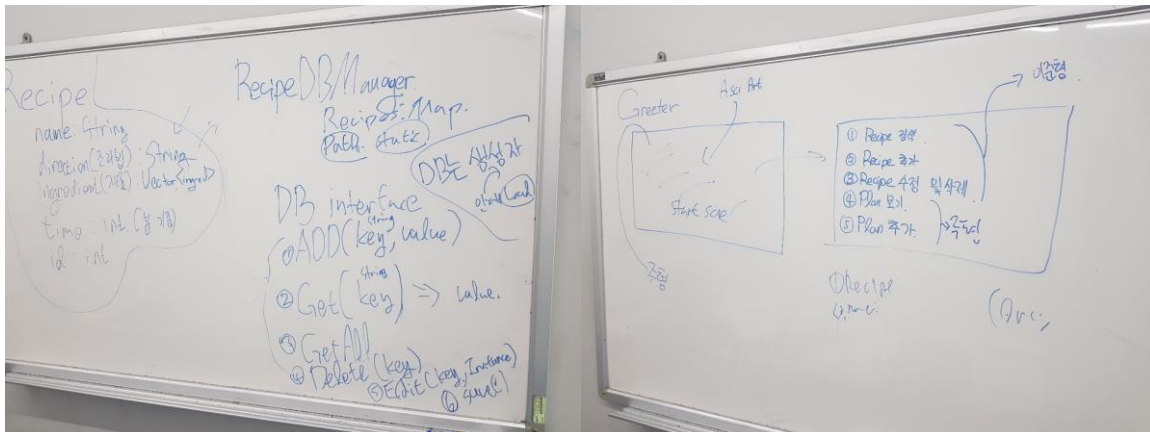 Recipe
name: String
direction(조리법): String
ingredient(재료): Vector<ingred>
time: int (분 기준)
id: int
RecipeDBManager
Recipes: Map.
Path: static
DB는 생성자
Load
DB interface
① ADD(key, value)
String
② Get(key) => value.
String
③ GetAll
④ Delete(key)
⑤ Edit(key, Instance)
⑥ save()
Greeter
Asci Art
① Recipe 검색
② Recipe 추가
③ Recipe 수정 및 삭제
④ Plan 보기
⑤ Plan 추가
① Recipe